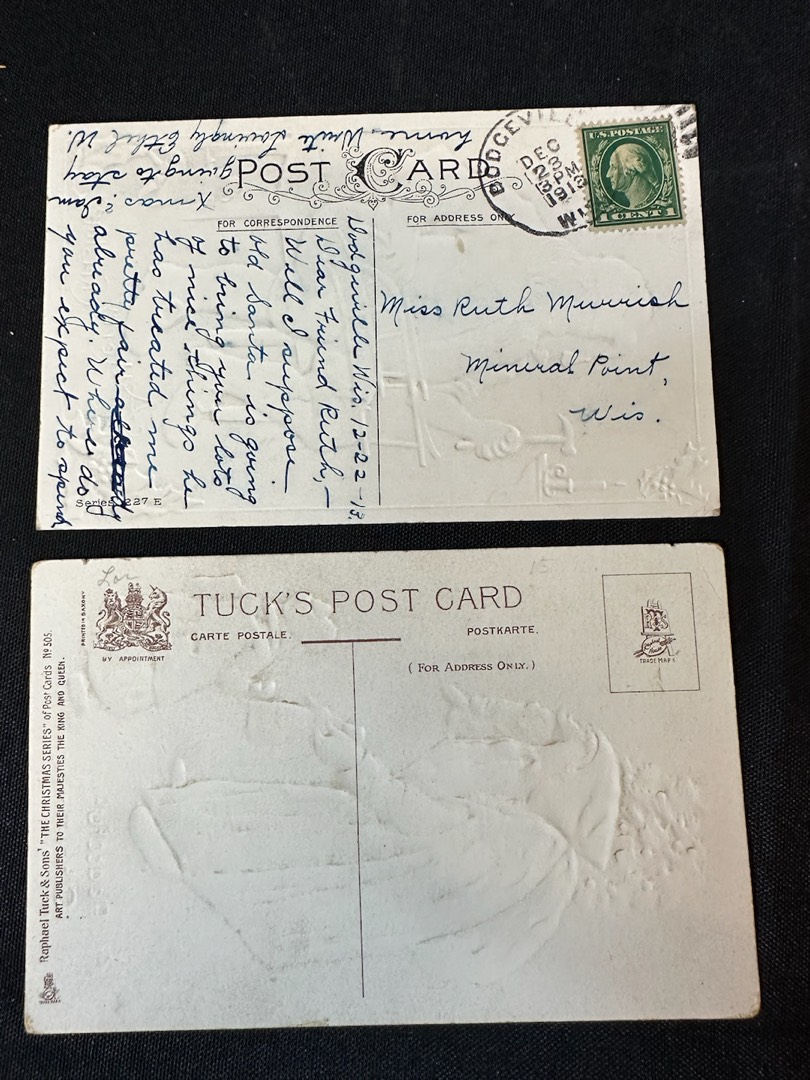 POST CARD
FOR CORRESPONDENCE
FOR ADDRESS ONLY
DODGEVILLE
DEC
23
3 PM
1913
WIS
U.S. POSTAGE
1 CENT 1
Miss Ruth Murrish
Mineral Point,
Wis.
Dodgeville Wis. 12-22-13.
Dear Friend Ruth,-
Well I suppose
old Santa is going
to bring you lots
of nice things he
has treated me
pretty fair
already. Where do
you expect to spend
Xmas? I am
going to stay
home. Write Lovingly Ethel W.
Series 227 E
TUCK'S POST CARD
CARTE POSTALE.
POSTKARTE.
(FOR ADDRESS ONLY.)
PRINTED IN SAXONY
BY APPOINTMENT
TRADE MARK
15
Raphael Tuck & Sons' "THE CHRISTMAS SERIES" of Post Cards Nº 505.
ART PUBLISHERS TO THEIR MAJESTIES THE KING AND QUEEN.